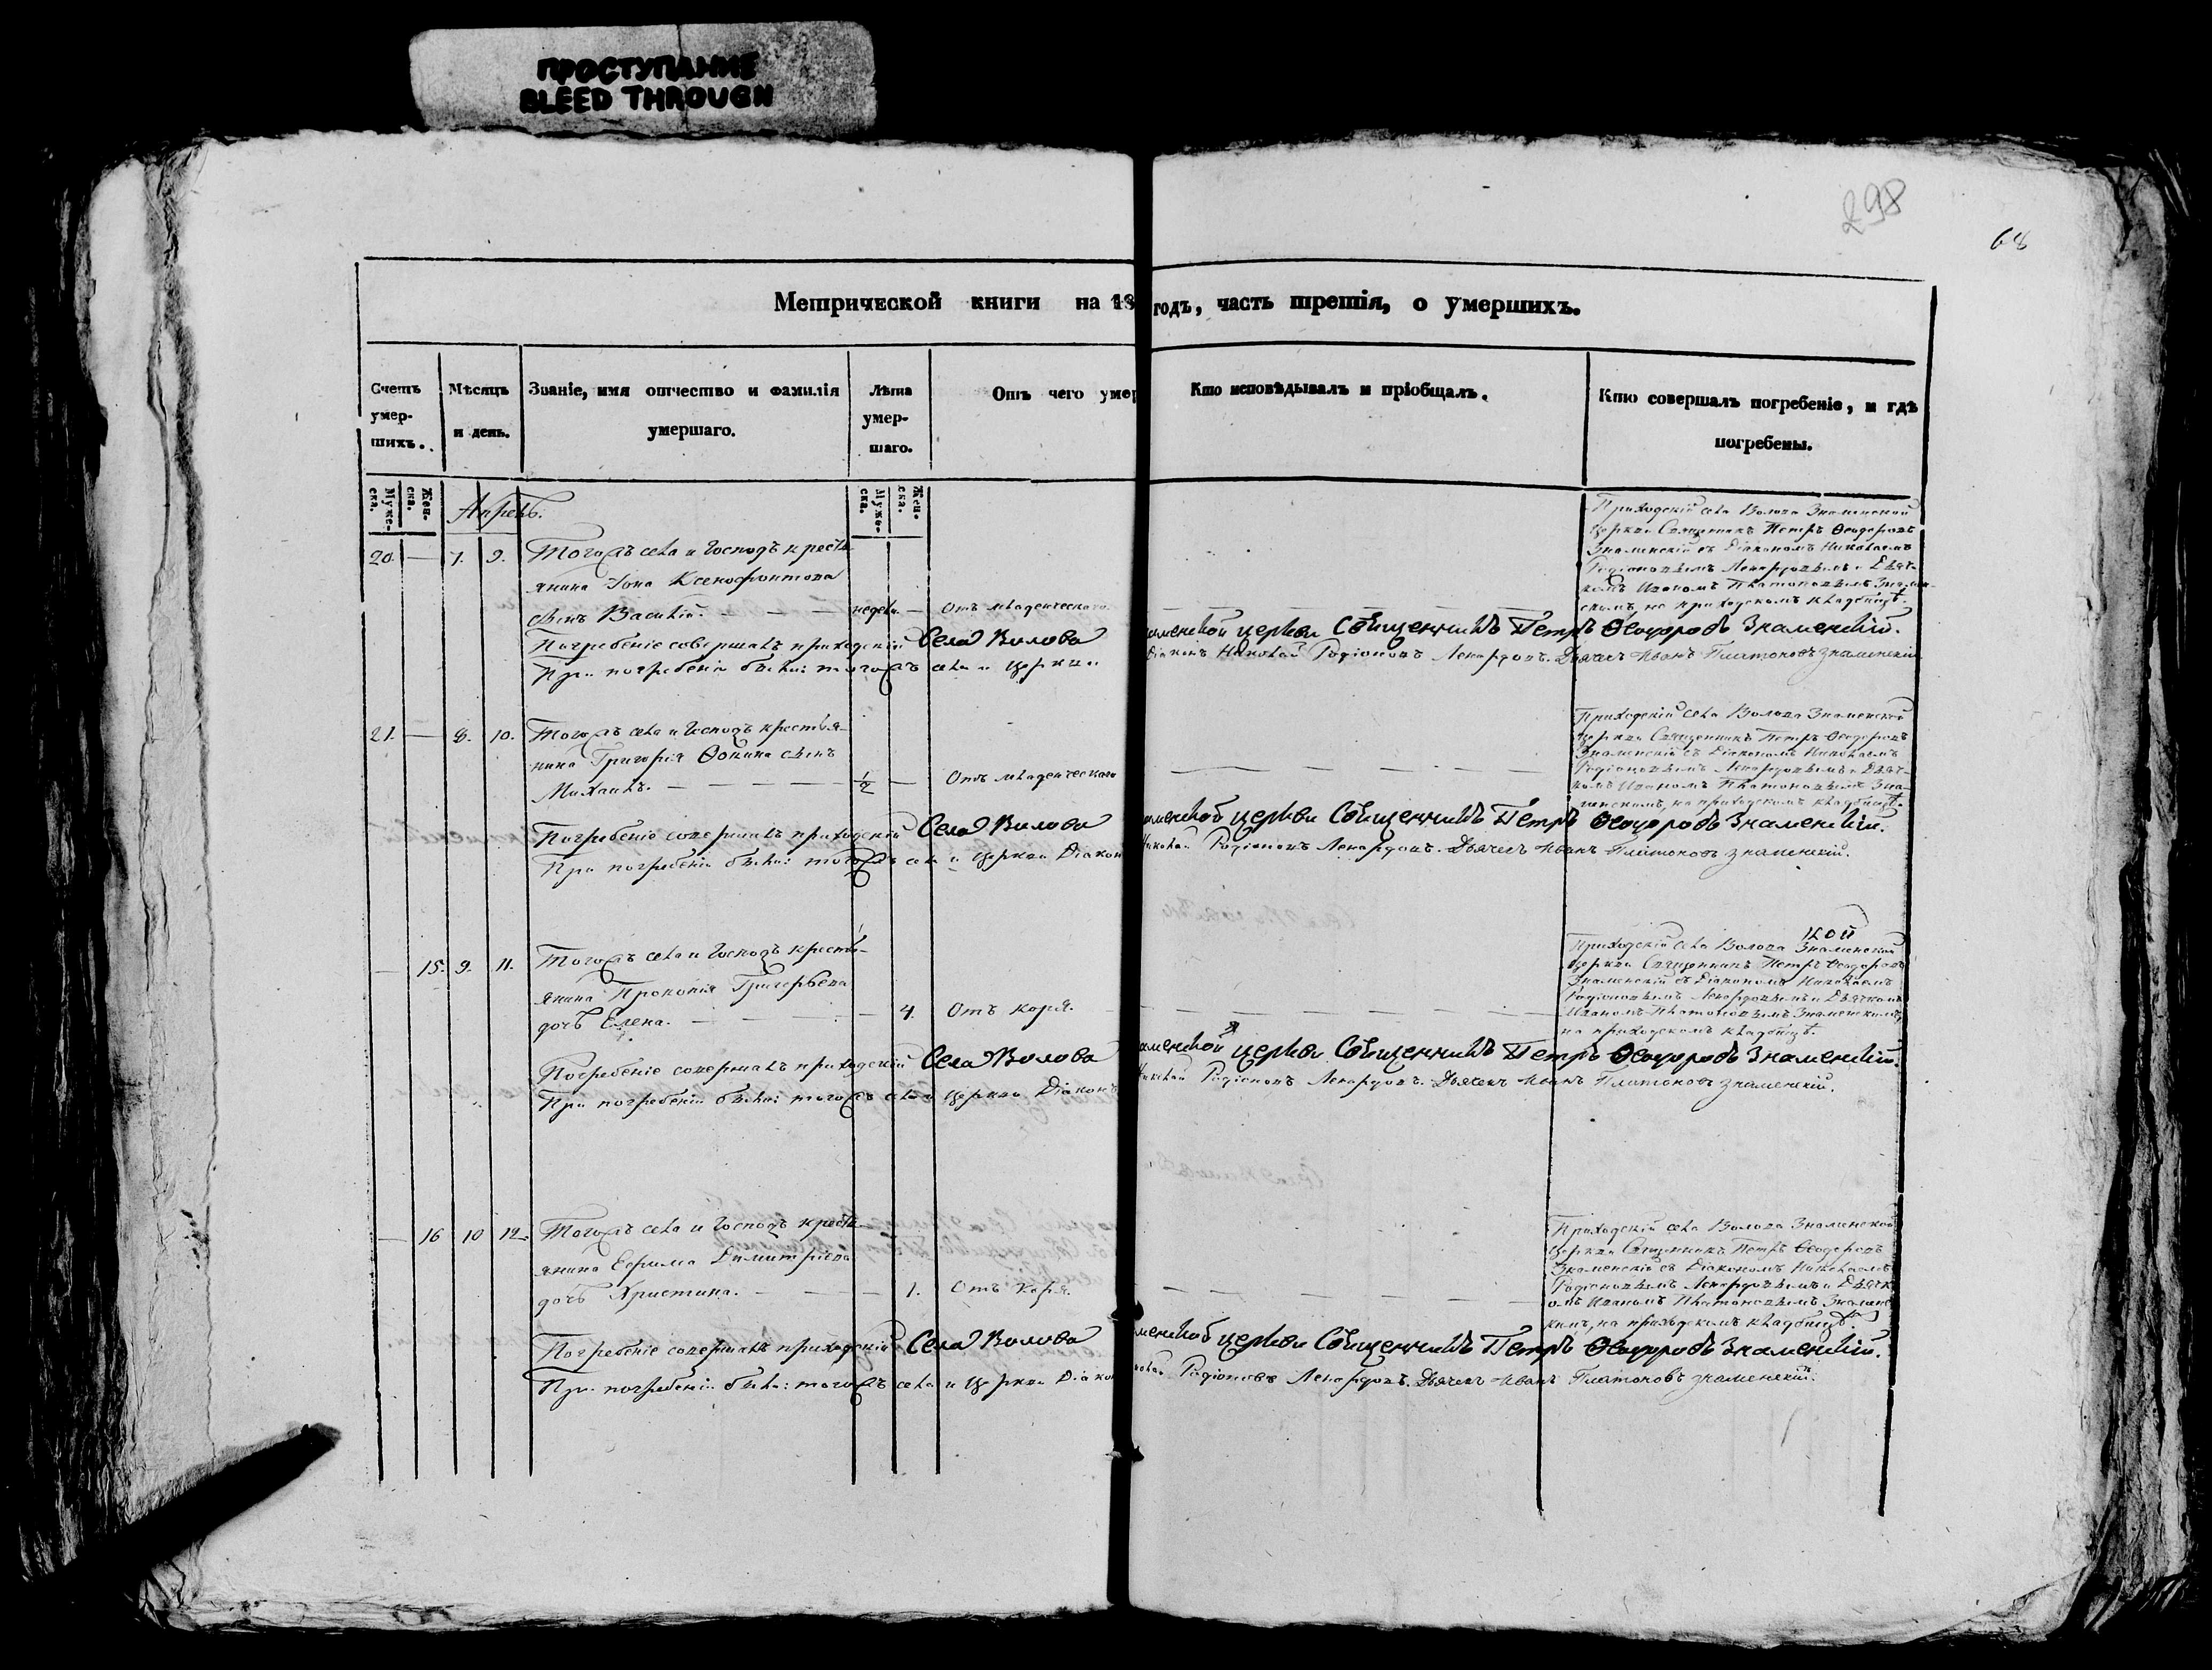 ПРОСТУПАНИЕ
BLEED THROUGH
298
68
Метрической книги на 18 годъ, часть третія, о умершихъ.
Счетъ умер-шихъ.
Мѣсяцъ и день.
Званіе, имя отчество и фамилія умершаго.
Лѣта умер-шаго.
Отъ чего умер
Кто исповѣдывалъ и пріобщалъ.
Кто совершалъ погребеніе, и гдѣ погребены.
Муже-ска.
Жен-ска.
Муже-ска.
Жен-ска.
Апрель.
20. — 7. 9.
Тогожъ села и Господъ кресть-
янина Iона Ксенофонтова
сынъ Василій. — — — недели. — Отъ младенческаго
Приходскій села Волова Знаменской
церкви Священникъ Петръ Ѳеодоровъ
Знаменскій съ Діакономъ Николаемъ
Родіоновымъ Леонардовымъ и Дьяч-
комъ Иваномъ Платоновымъ Знамен-
скимъ, на приходскомъ кладбищѣ.
Погребеніе совершалъ приходскій Села Волова
аменской церкви Священникъ Петръ Ѳеодоровъ Знаменскій.
При погребеніи были: тогожъ села и церкви
Діаконъ Николай Родіоновъ Дьячекъ Иванъ Платоновъ Знаменскій
21. — 8. 10.
Тогожъ села и Господъ крестья-
нина Григорія Ѳокина сынъ
Михаилъ. — — — 1/2 — Отъ младенческаго
Приходскій села Волова Знаменской
церкви Священникъ Петръ Ѳеодоровъ
Знаменскій съ Діакономъ Николаемъ
Родіоновымъ и Дьяч-
комъ Иваномъ Платоновымъ Зна-
менскимъ, на приходскомъ кладбищѣ.
Погребеніе совершалъ приходскій Села Волова
аменской церкви Священникъ Петръ Ѳеодоровъ Знаменскій.
При погребеніи были: тогожъ села и церкви Діакон
Николай Родіоновъ Дьячекъ Иванъ Платоновъ Знаменскій.
— 15. 9. 11.
Тогожъ села и Господъ кресть-
янина Прокопія Григорьева
дочь Елена. — — — 4. Отъ коря.
кой
Приходскій села Волова Знаменской
церкви Священникъ Петръ Ѳеодоровъ
Знаменскій съ Діакономъ Николаемъ
Родіоновымъ и Дьячкомъ
Иваномъ Платоновымъ Знаменскимъ,
на приходскомъ кладбищѣ.
Погребеніе совершалъ приходскій Села Волова
аменской церкви Священникъ Петръ Ѳеодоровъ Знаменскій.
При погребеніи были: тогожъ села и церкви Діаконъ
Николай Родіоновъ Дьячекъ Иванъ Платоновъ Знаменскій.
— 16 10 12.
Тогожъ села и Господъ кресть-
янина Ефрима Димитріева
дочь Христина. — — — 1. Отъ Коря.
Приходскій села Волова Знаменской
церкви Священникъ Петръ Ѳеодоровъ
Знаменскій съ Діакономъ Николаемъ
Родіоновымъ и Дьячк-
омъ Иваномъ Платоновымъ Знаменс
кимъ, на приходскомъ кладбищѣ.
Погребеніе совершалъ приходскій Села Волова
менской церкви Священникъ Петръ Ѳеодоровъ Знаменскій.
При погребеніи были: тогожъ села и церкви Діако
колай Родіоновъ Дьячекъ Иванъ Платоновъ Знаменскій.